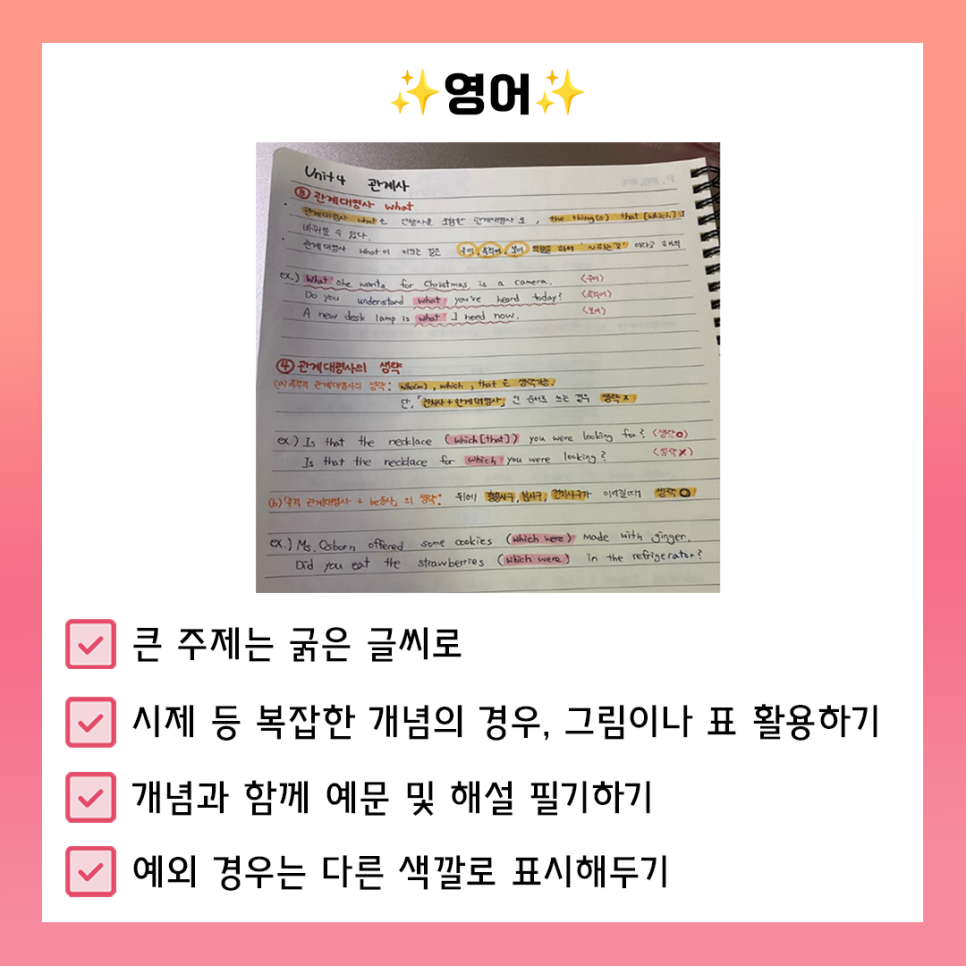 ✨영어✨
Unit 4 관계사
③ 관계대명사 what
관계대명사 what은 선행사를 포함한 관계대명사로, the thing(s) that [which]로
바꿔쓸 수 있다.
관계대명사 what이 이끄는 절은 주어, 목적어, 보어 역할을 하며 "~하는 것" 이라고 해석
ex.) What she wants for Christmas is a camera. (주어)
Do you understand what you've heard today? (목적어)
A new desk lamp is what I need now. (보어)
④ 관계대명사의 생략
(a) 목적격 관계대명사의 생략: who(m), which, that은 생략가능.
단, 「전치사 + 관계대명사」인 순서로 쓰는 경우 생략 X
ex.) Is that the necklace (which[that]) you were looking for? (생략O)
Is that the necklace for which you were looking? (생략X)
(b) 「주격 관계대명사 + be동사」의 생략: 뒤에 형용사구, 분사구, 전치사구가 이어질때 생략 O
ex.) Ms. Osborn offered some cookies (which were) made with ginger.
Did you eat the strawberries (which were) in the refrigerator?
큰 주제는 굵은 글씨로
시제 등 복잡한 개념의 경우, 그림이나 표 활용하기
개념과 함께 예문 및 해설 필기하기
예외 경우는 다른 색깔로 표시해두기